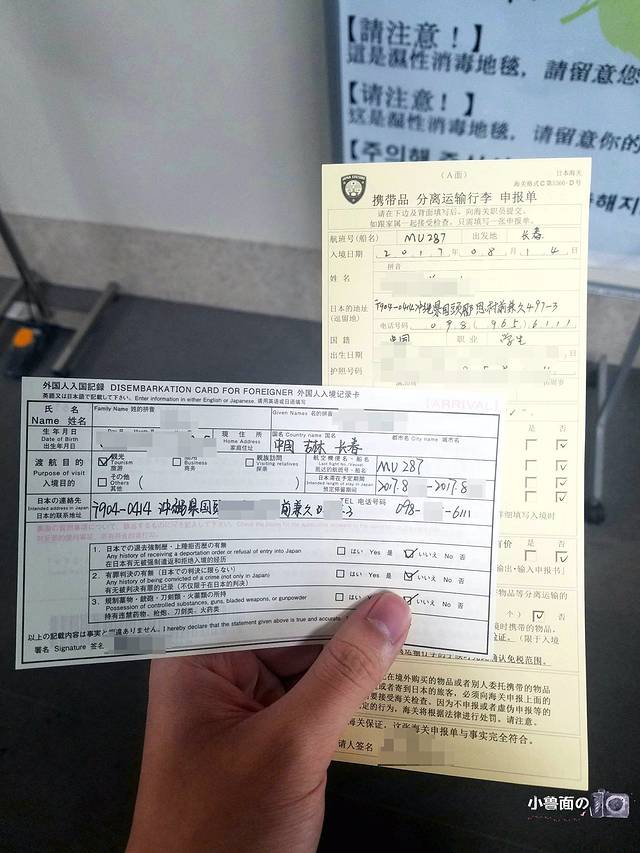 【請注意！】
這是濕性消毒地毯，請留意您
【请注意！】
这是湿性消毒地毯，请留意你的
【주의해
(A面)
日本海关
海关格式C第5360-D号
携带品 分离运输行李 申报单
请在下边及背面填写后，向海关职员提交。
如跟家属一起接受检查，只需填写一张申报单。
航班号(船名) MU287 出发地 长春
入境日期 2017年08月14日
拼音
姓名
日本的地址
(逗留地)
〒904-0414 沖縄県国頭郡恩納村前兼久497-3
电话号码 098(965)6111
国籍 中国 职业 学生
出生日期
护照号码
外国人入国記録 DISEMBARKATION CARD FOR FOREIGNER 外国人入境记录卡
英語又は日本語で記載して下さい。Enter information in either English or Japanese. 请用英语或日语填写
[ARRIVAL]
氏名
Name 姓名
Family Name 姓的拼音
Given Names 名的拼音
生年月日
Date of Birth
出生年月日
現住所
Home Address
家庭住址
国名 Country name 国名
都市名 City name 城市名
中国 吉林 长春
渡航目的
Purpose of visit
入境目的
観光
Tourism
旅游
商用
Business
商务
親族訪問
Visiting relatives
探亲
その他
Others
其他
航空機便名・船名
Last flight No./Vessel
抵达的航班号・船名
MU 287
日本滞在予定期間
Intended length of stay in Japan
预定停留期间
2017.8 -2017.8
日本の連絡先
Intended address in Japan
日本的联系地址
〒904-0414 沖縄県国頭 前兼久 -3
TEL 电话号码
098- -6111
1. 日本での退去強制歴・上陸拒否歴の有無
Any history of receiving a deportation order or refusal of entry into Japan
在日本有无被强制遣返和拒绝入境的经历
□ はい Yes 是 ☑ いいえ No 否
2. 有罪判決の有無（日本での判決に限らない）
Any history of being convicted of a crime (not only in Japan)
有无被判决有罪的记录（不仅限于在日本的判决）
□ はい Yes 是 ☑ いいえ No 否
3. 規制薬物・銃砲・刀剣類・火薬類の所持
Possession of controlled substances, guns, bladed weapons, or gunpowder
持有违禁药物、枪炮、刀剑类、火药类
□ はい Yes 是 ☑ いいえ No 否
以上の記載内容は事実と相違ありません。I hereby declare that the statement given above is true and accurate.
署名 Signature 签名
在境外购买的物品或者别人委托携带的物品
或者寄到日本的旅客，必须向海关申报上面的
要接受海关检查。因为不申报或者虚伪申报等的
定的行为，海关将根据法律进行处罚。请注意。
海关保证，这张海关申报单与事实完全符合。
请人签名
小鲁面の